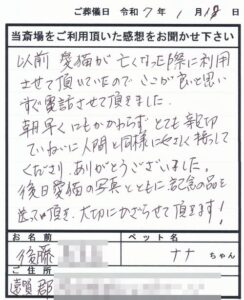 ご葬儀日 令和7年1月18日
当斎場をご利用頂いた感想をお聞かせ下さい
以前愛猫が亡くなった際に利用
させて頂いていたのでここが良いと思い
すぐ電話させて頂きました。
朝早くにもかかわらずとても親切
ていねいに人間と同様にやさしく接して
くださり、ありがとうございました。
後日愛猫の写真とともに記念の品を
送って頂き、大切にかざらせて頂きます!
お名前 ペット名
後藤 ナナ ちゃん
ご住所
遠賀郡